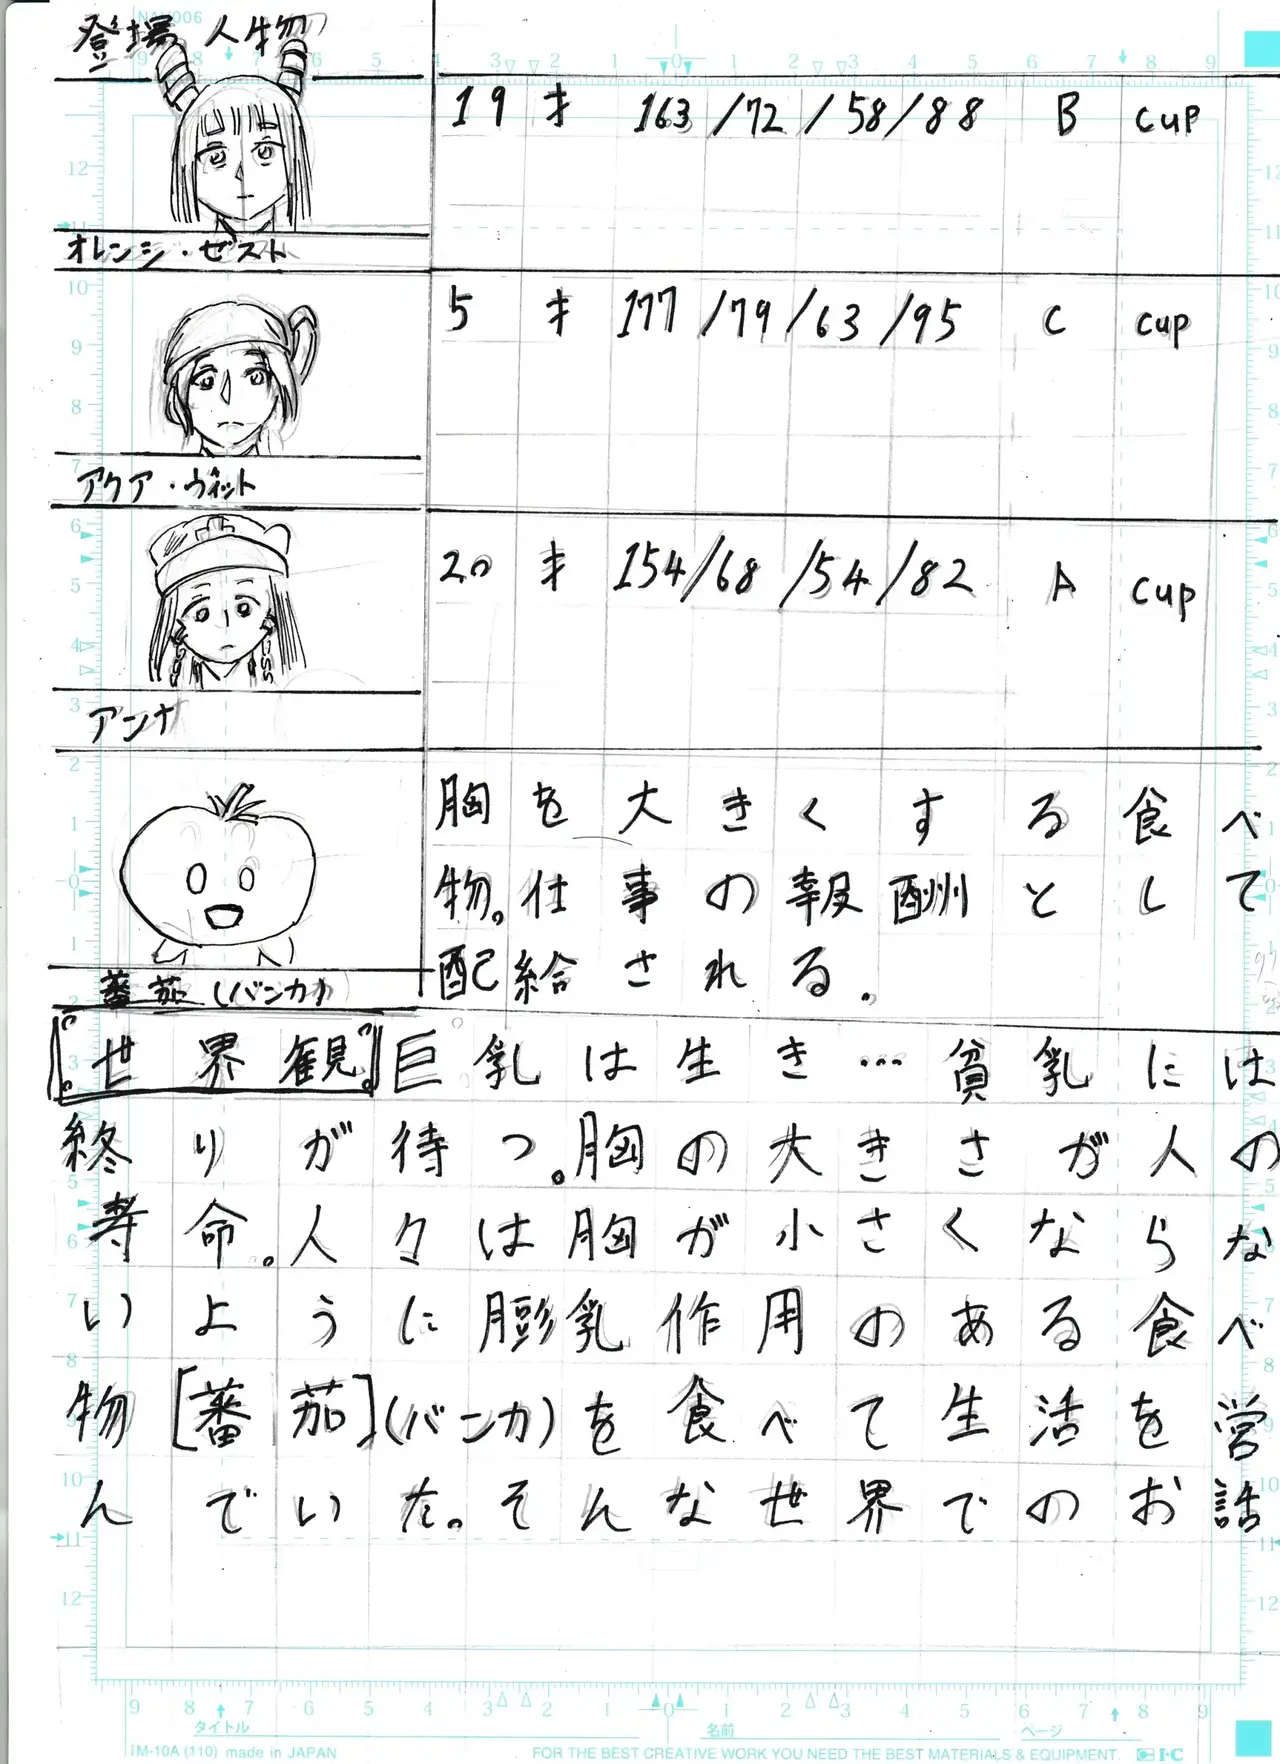 NAV006
登場人物
19才 163/72/58/88 B cup
オレンジ・ゼスト
5才 177/79/63/95 C cup
アクア・ヴィット
20才 154/68/54/82 A cup
アンナ
胸を大きくする食べ
物。仕事の報酬として
配給される。
蕃茄(バンカ)
『世界観』巨乳は生き…貧乳には
終りが待つ。胸の大きさが人の
寿命。人々は胸が小さくならな
いように膨乳作用のある食べ
物[蕃茄](バンカ)を食べて生活を営
んでいた。そんな世界でのお話
タイトル 名前 ページ
IM-10A (110) made in JAPAN FOR THE BEST CREATIVE WORK YOU NEED THE BEST MATERIALS & EQUIPMENT. I·C